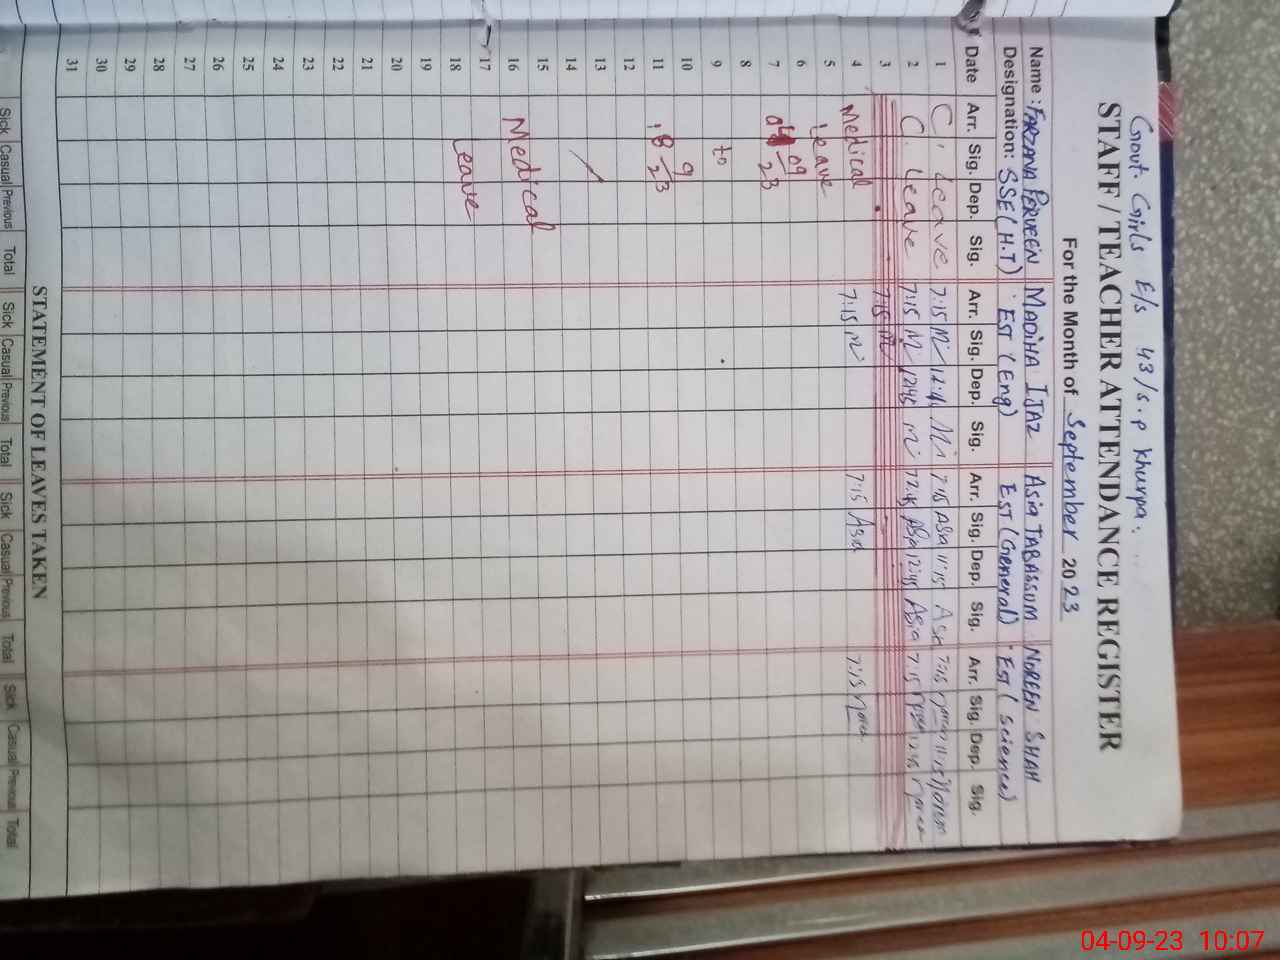 Govt. Girls E/s 43/s.p Khurpa.
STAFF / TEACHER ATTENDANCE REGISTER
For the Month of September 2023
Name : FARZANA PERVEEN MADIHA IJAZ Asia TABASSUM NOREEN SHAH
Designation: SSE(H.T) EST (Eng) EST (General) EST (science)
Date Arr. Sig. Dep. Sig. Arr. Sig. Dep. Sig. Arr. Sig. Dep. Sig. Arr. Sig. Dep. Sig.
1 C. Leave 7:15 7:15 Asia 11:15 7:15 11:15 Noreen
2 C. Leave 7:15 M 12:45 m Asia 12:45 Asia 7:15 12:45
3 7:15
4 Medical 7:15 7:15 Asia 7:15 Noreen
5 Leave
6
7 04 09 23
8
9 to
10
11 18 9 23
12
13
14
15
16 Medical
17
18 Leave
19
20
21
22
23
24
25
26
27
28
29
30
31
STATEMENT OF LEAVES TAKEN
Sick Casual Previous Total Sick Casual Previous Total Sick Casual Previous Total Sick Casual Previous Total
04-09-23 10:07